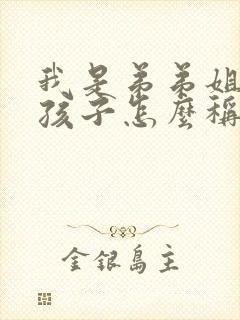 我是弟弟姐
孩子怎麼稱
金銀島主